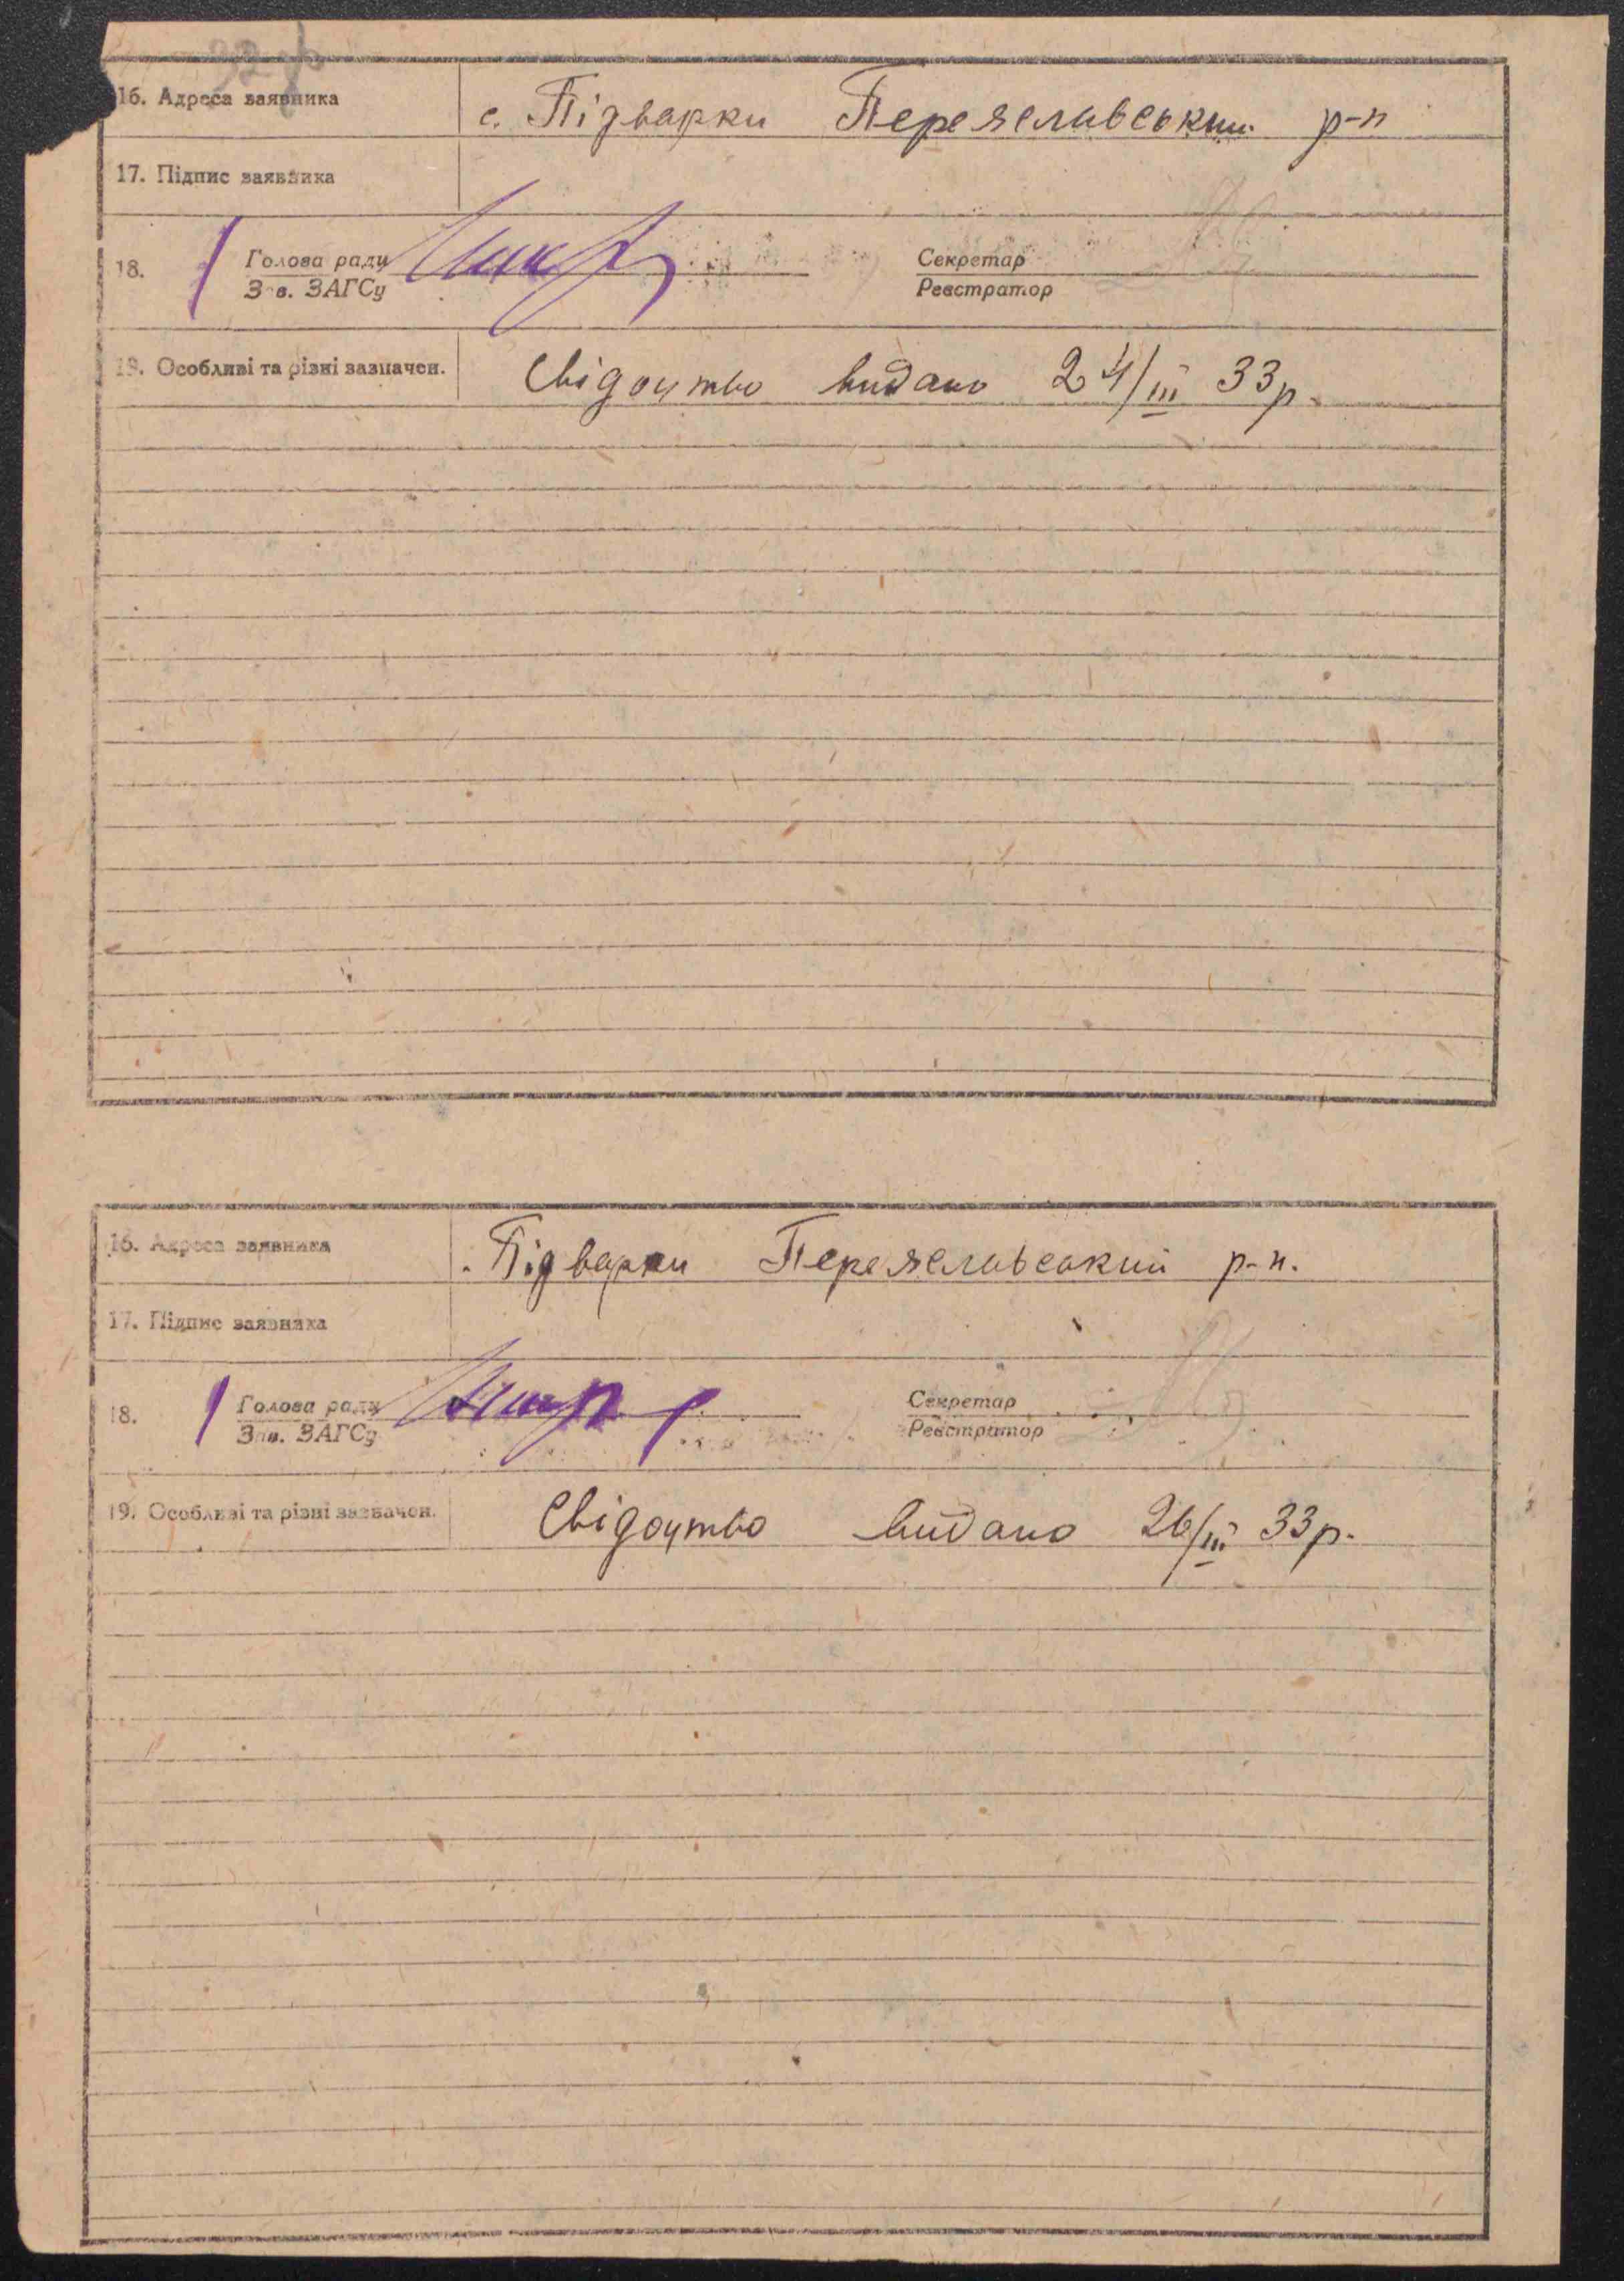 16. Адреса заявника с. Підварки Переяславський р-н
17. Підпис заявника
18. Голова ради Секретар
Зав. ЗАГСу Реєстратор
19. Особливі та різні зазначен. Свідоцтво видано 24/III 33р.
16. Адреса заявника Підварки Переяславський р-н.
17. Підпис заявника
18. Голова ради Секретар
Зав. ЗАГСу Реєстратор
19. Особливі та різні зазначен. Свідоцтво видано 26/III 33р.